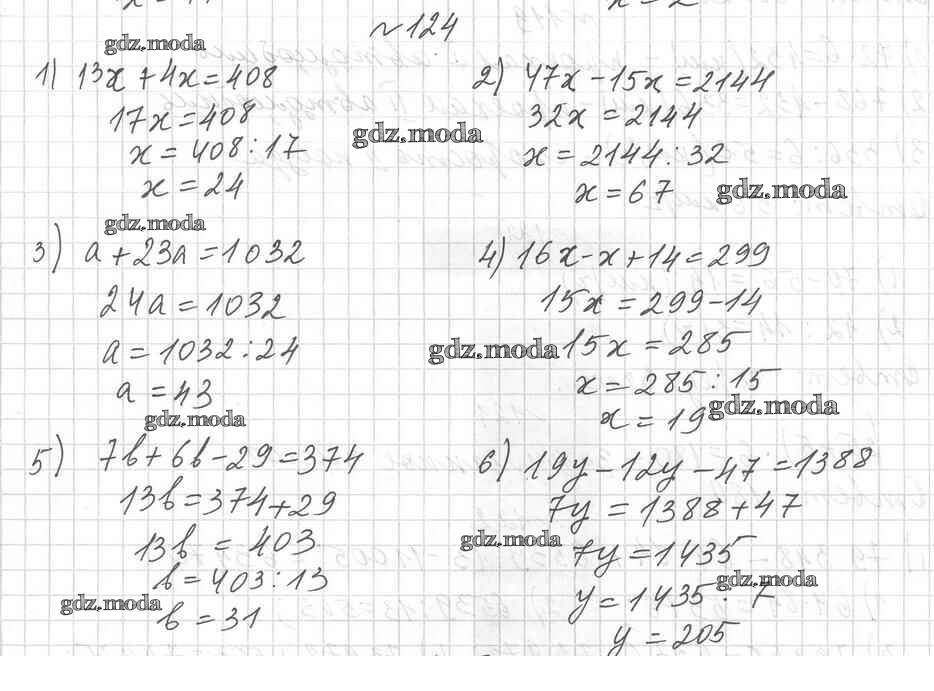 №124
gdz.moda
1) 13x + 4x = 408
17x = 408
x = 408 : 17
x = 24
2) 47x - 15x = 2144
32x = 2144
gdz.moda
x = 2144 : 32
x = 67
gdz.moda
gdz.moda
3) a + 23a = 1032
24a = 1032
a = 1032 : 24
a = 43
gdz.moda
4) 16x - x + 14 = 299
15x = 299 - 14
gdz.moda
15x = 285
x = 285 : 15
x = 19
gdz.moda
5) 7b + 6b - 29 = 374
13b = 374 + 29
13b = 403
b = 403 : 13
gdz.moda
b = 31
6) 19y - 12y - 47 = 1388
7y = 1388 + 47
gdz.moda
7y = 1435
gdz.moda
y = 1435 : 7
y = 205